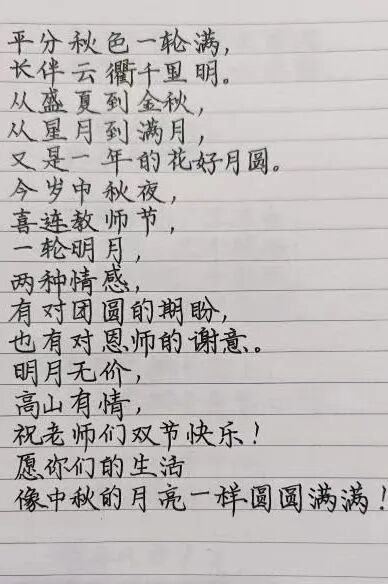 平分秋色一轮满，
长伴云衢千里明。
从盛夏到金秋，
从星月到满月，
又是一年的花好月圆。
今岁中秋夜，
喜连教师节，
一轮明月，
两种情感，
有对团圆的期盼，
也有对恩师的谢意。
明月无价，
高山有情，
祝老师们双节快乐！
愿你们的生活
像中秋的月亮一样圆圆满满！